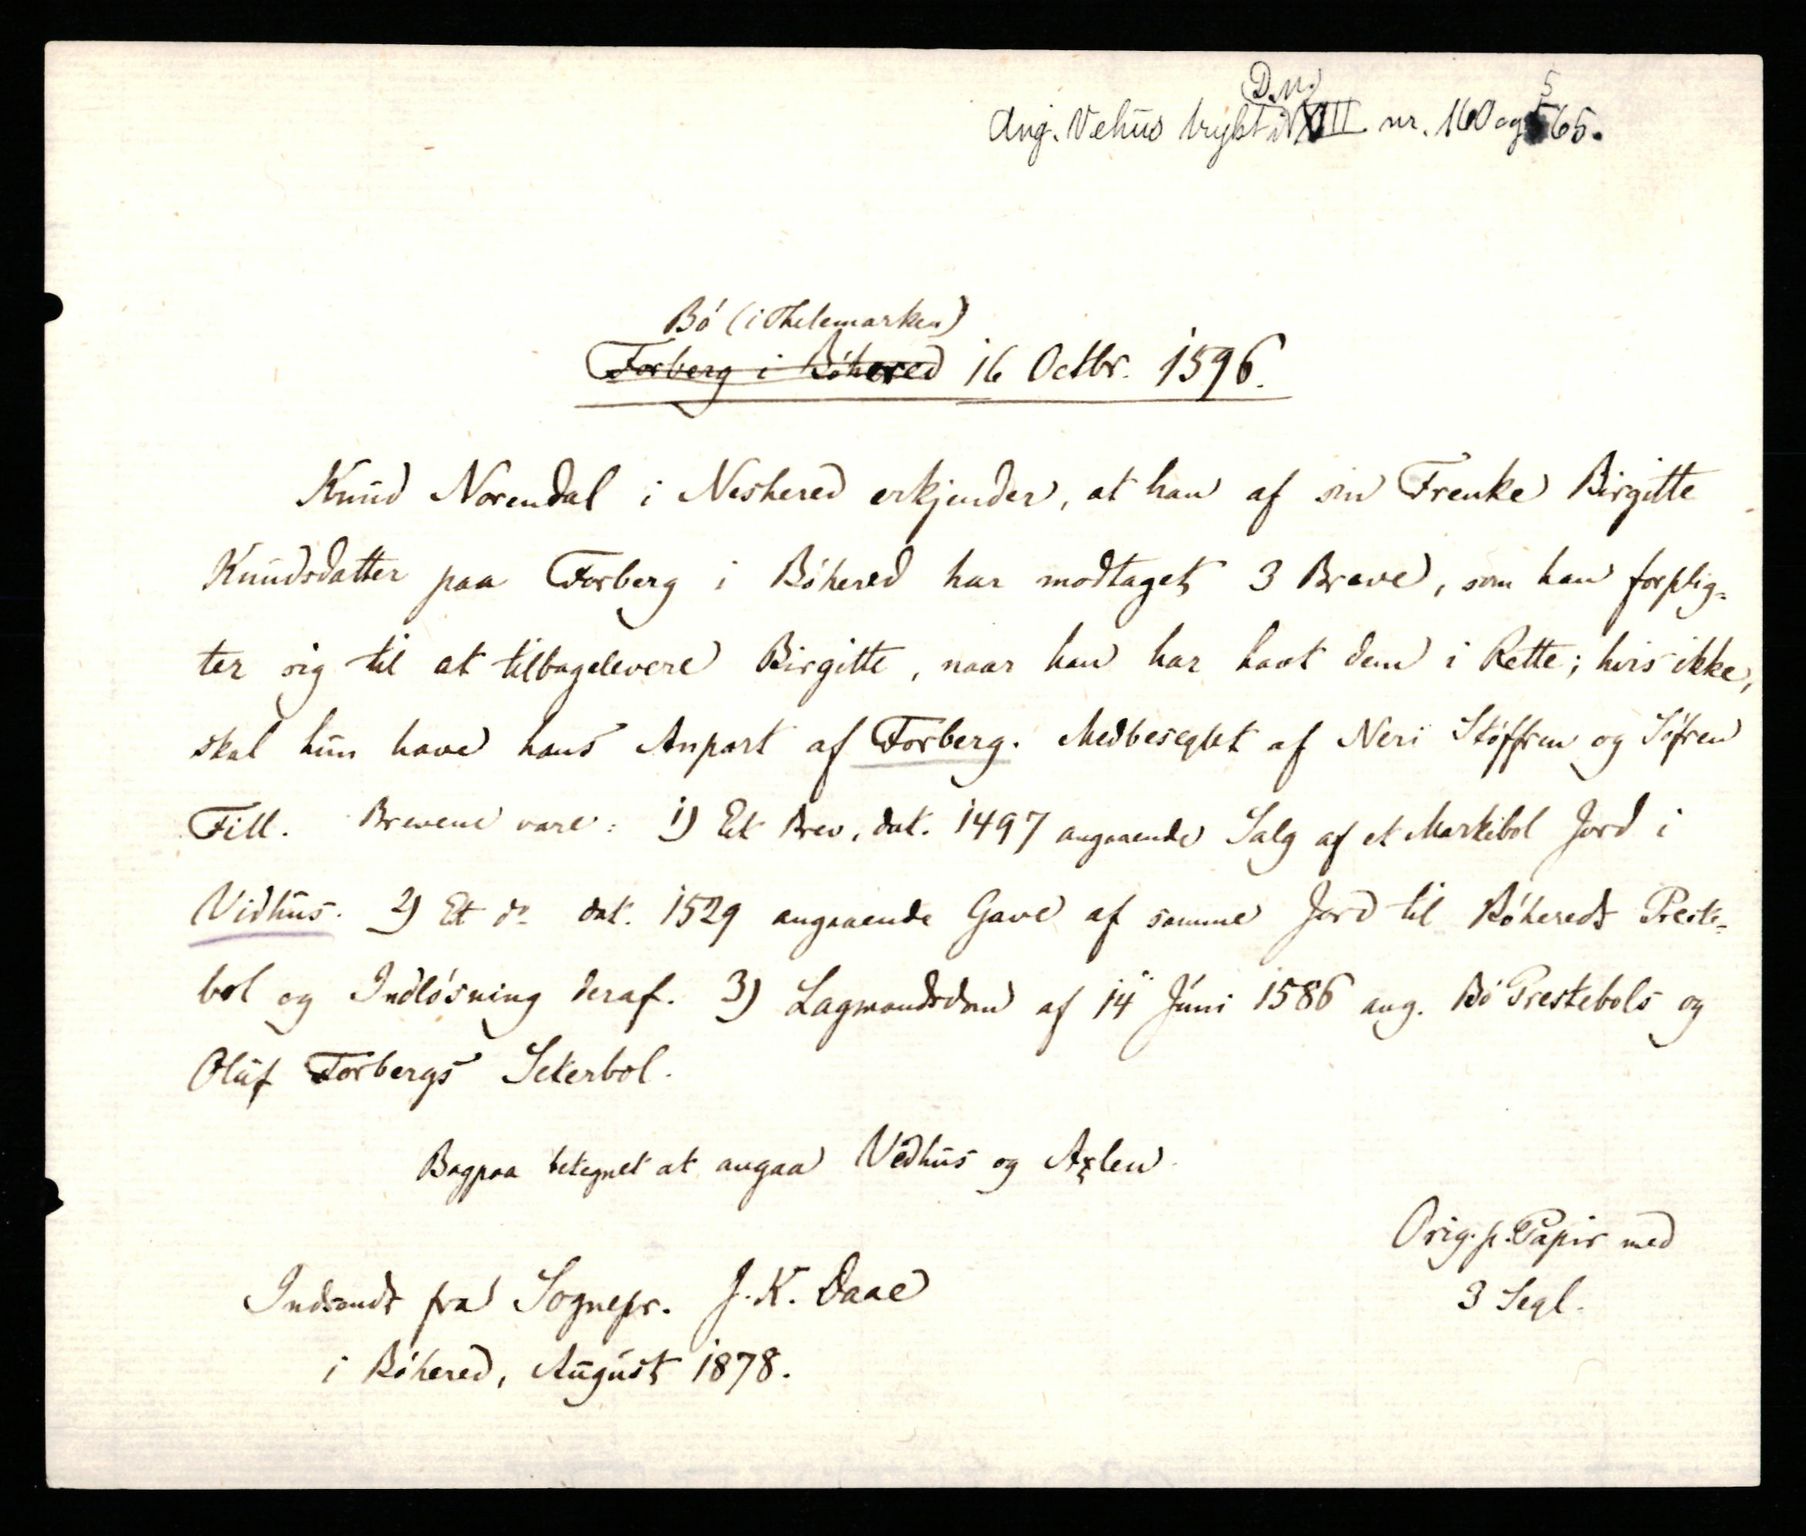 D.N.
Ang. Vehus trykt i XIII nr. 160 og 565.
Bö (i Thelemarken)
Forberg i Böhered 16 Octbr. 1596.
Knud Norendal i Neshered erkjender, at han af sin Frenke Birgitte
Knudsdatter paa Forberg i Böhered har modtaget 3 Breve, som han forplig-
ter sig til at tilbagelevere Birgitte, naar han har havt dem i Rette; hvis ikke,
skal hun have hans Anpart af Forberg. Medbeseglet af Neri Støffren og Söfren
Till. Brevene vare: 1) Et Brev, dat. 1497 angaaende Salg af et Markebol Jord i
Vidhus. 2) Et do dat. 1529 angaaende Gave af samme Jord til Böhereds Preste-
bol og Indlösning deraf. 3) Lagmandsdom af 14 Juni 1586 ang. Bö Prestebols og
Oluf Forbergs Sekerbol.
Bagpaa betegnet at angaa Vedhus og Axlen.
Orig. p. Papir med
3 Segl.
Indsendt fra Sognepr. J. K. Daae
i Böhered, August 1878.